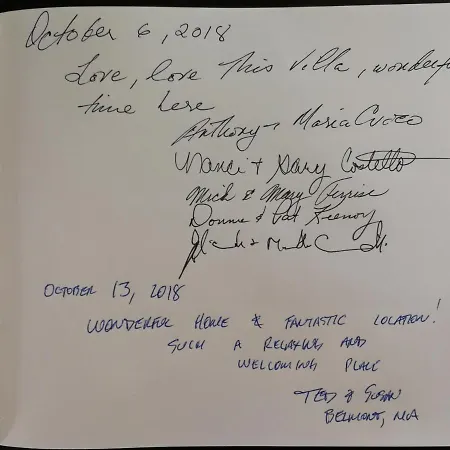 October 6, 2018
Love, love this Villa, wonderf
time here
Anthony + Maria Cuoco
Nanci + Gary Costello
Mick & Mary
Donna & Pat
OCTOBER 13, 2018
WONDERFUL HOME & FANTASTIC LOCATION!
SUCH A RELAXING AND
WELCOMING PLACE
TED & SUSAN
BELMONT, MA